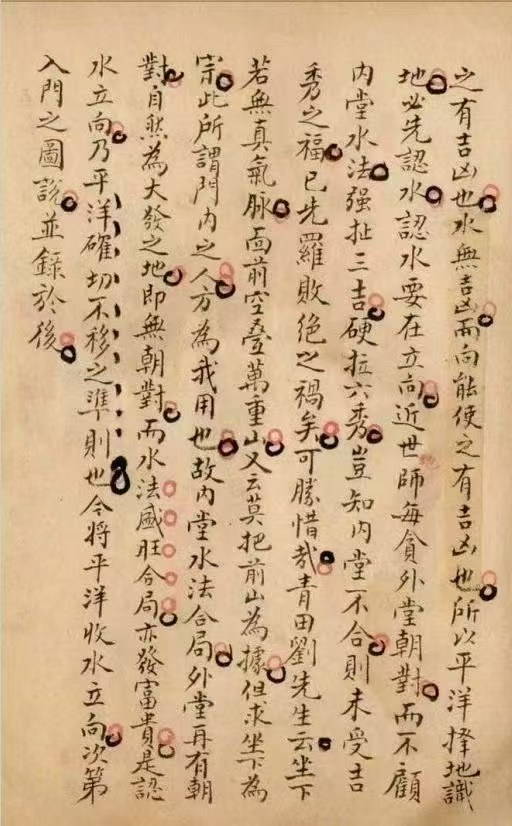 之有吉凶也水無吉凶而向能使之有吉凶也所以平洋擇地識
地必先認水認水要在立向近世師每貪外堂朝對而不顧
內堂水法强扯三吉硬拉六秀豈知內堂一不合則未受吉
秀之福已先罹敗絕之禍矣可勝惜哉青田劉先生云坐下
若無真氣脉面前空叠萬重山又云莫把前山為據但求坐下為
宗此所謂門內之人方為我用也故內堂水法合局外堂再有朝
對自然為大發之地即無朝對而水法盛旺合局亦發富貴是認
水立向乃平洋確切不移之準則也今將平洋收水立向次第
入門之圖説並錄於後